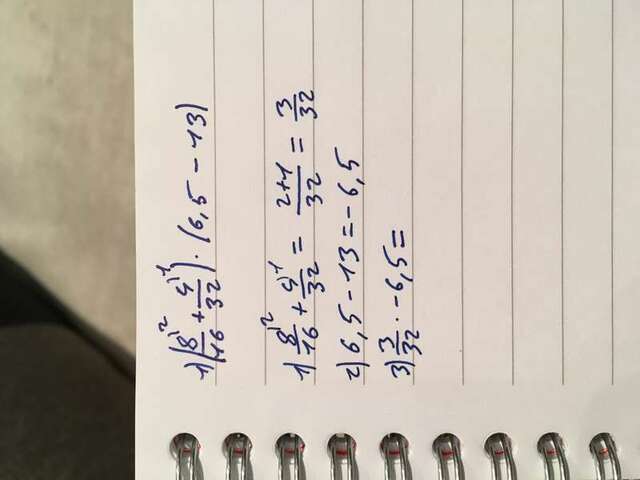 1) (8/16 ⁾² + 4/32 ⁾¹) · (6,5 − 13)
1) 8/16 ⁾² + 4/32 ⁾¹ = 2+1/32 = 3/32
2) 6,5 − 13 = − 6,5
3) 3/32 · − 6,5 =